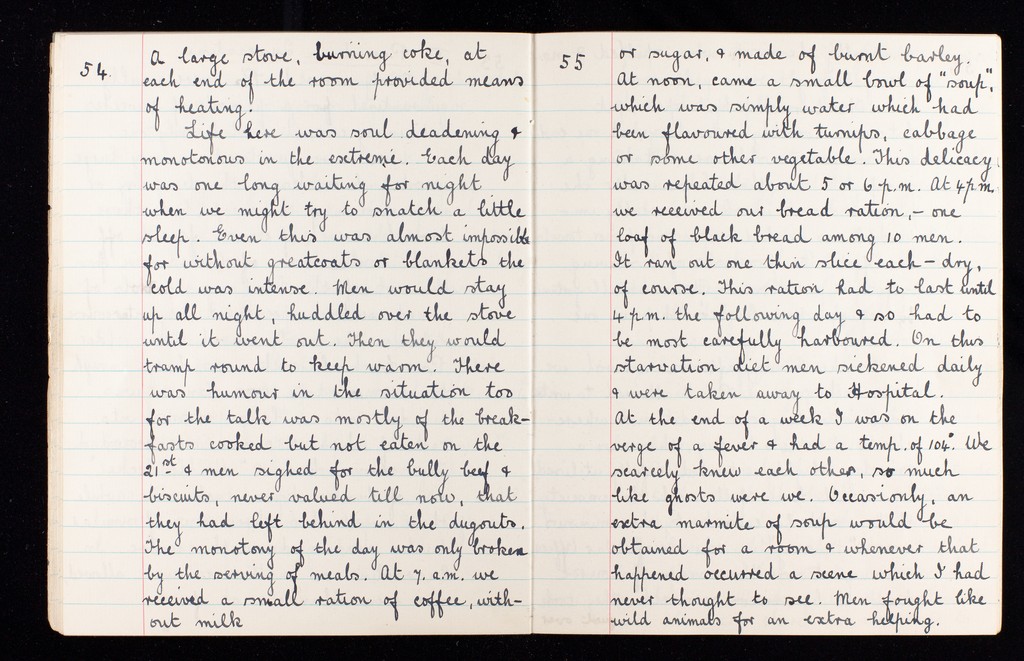 54
A large stove, burning coke, at
each end of the room provided means
of heating.
Life here was soul deadening &
monotonous in the extreme. Each day
was one long waiting for night
when we might try to snatch a little
sleep. Even this was almost impossible
for without greatcoats or blankets the
cold was intense. Men would stay
up all night, huddled over the stove
until it went out. Then they would
tramp round to keep warm. There
was humour in the situation too
for the talk was mostly of the break-
fasts cooked but not eaten on the
21st & men sighed for the bully beef &
biscuits, never valued till now, that
they had left behind in the dugouts.
The monotony of the day was only broken
by the serving of meals. At 7. a.m. we
received a small ration of coffee, with-
out milk
55
or sugar, & made of burnt barley.
At noon, came a small bowl of "soup",
which was simply water which had
been flavoured with turnips, cabbage
or some other vegetable. This delicacy
was repeated about 5 or 6 p.m. At 4 p.m.
we received our bread ration, – one
loaf of black bread among 10 men.
It ran out one thin slice each – dry,
of course. This ration had to last until
4 p.m. the following day & so had to
be most carefully harboured. On this
starvation diet men sickened daily
& were taken away to Hospital.
At the end of a week I was on the
verge of a fever & had a temp. of 104°. We
scarcely knew each other, so much
like ghosts were we. Occasionly, an
extra marmite of soup would be
obtained for a room & whenever that
happened occurred a scene which I had
never thought to see. Men fought like
wild animals for an extra helping.